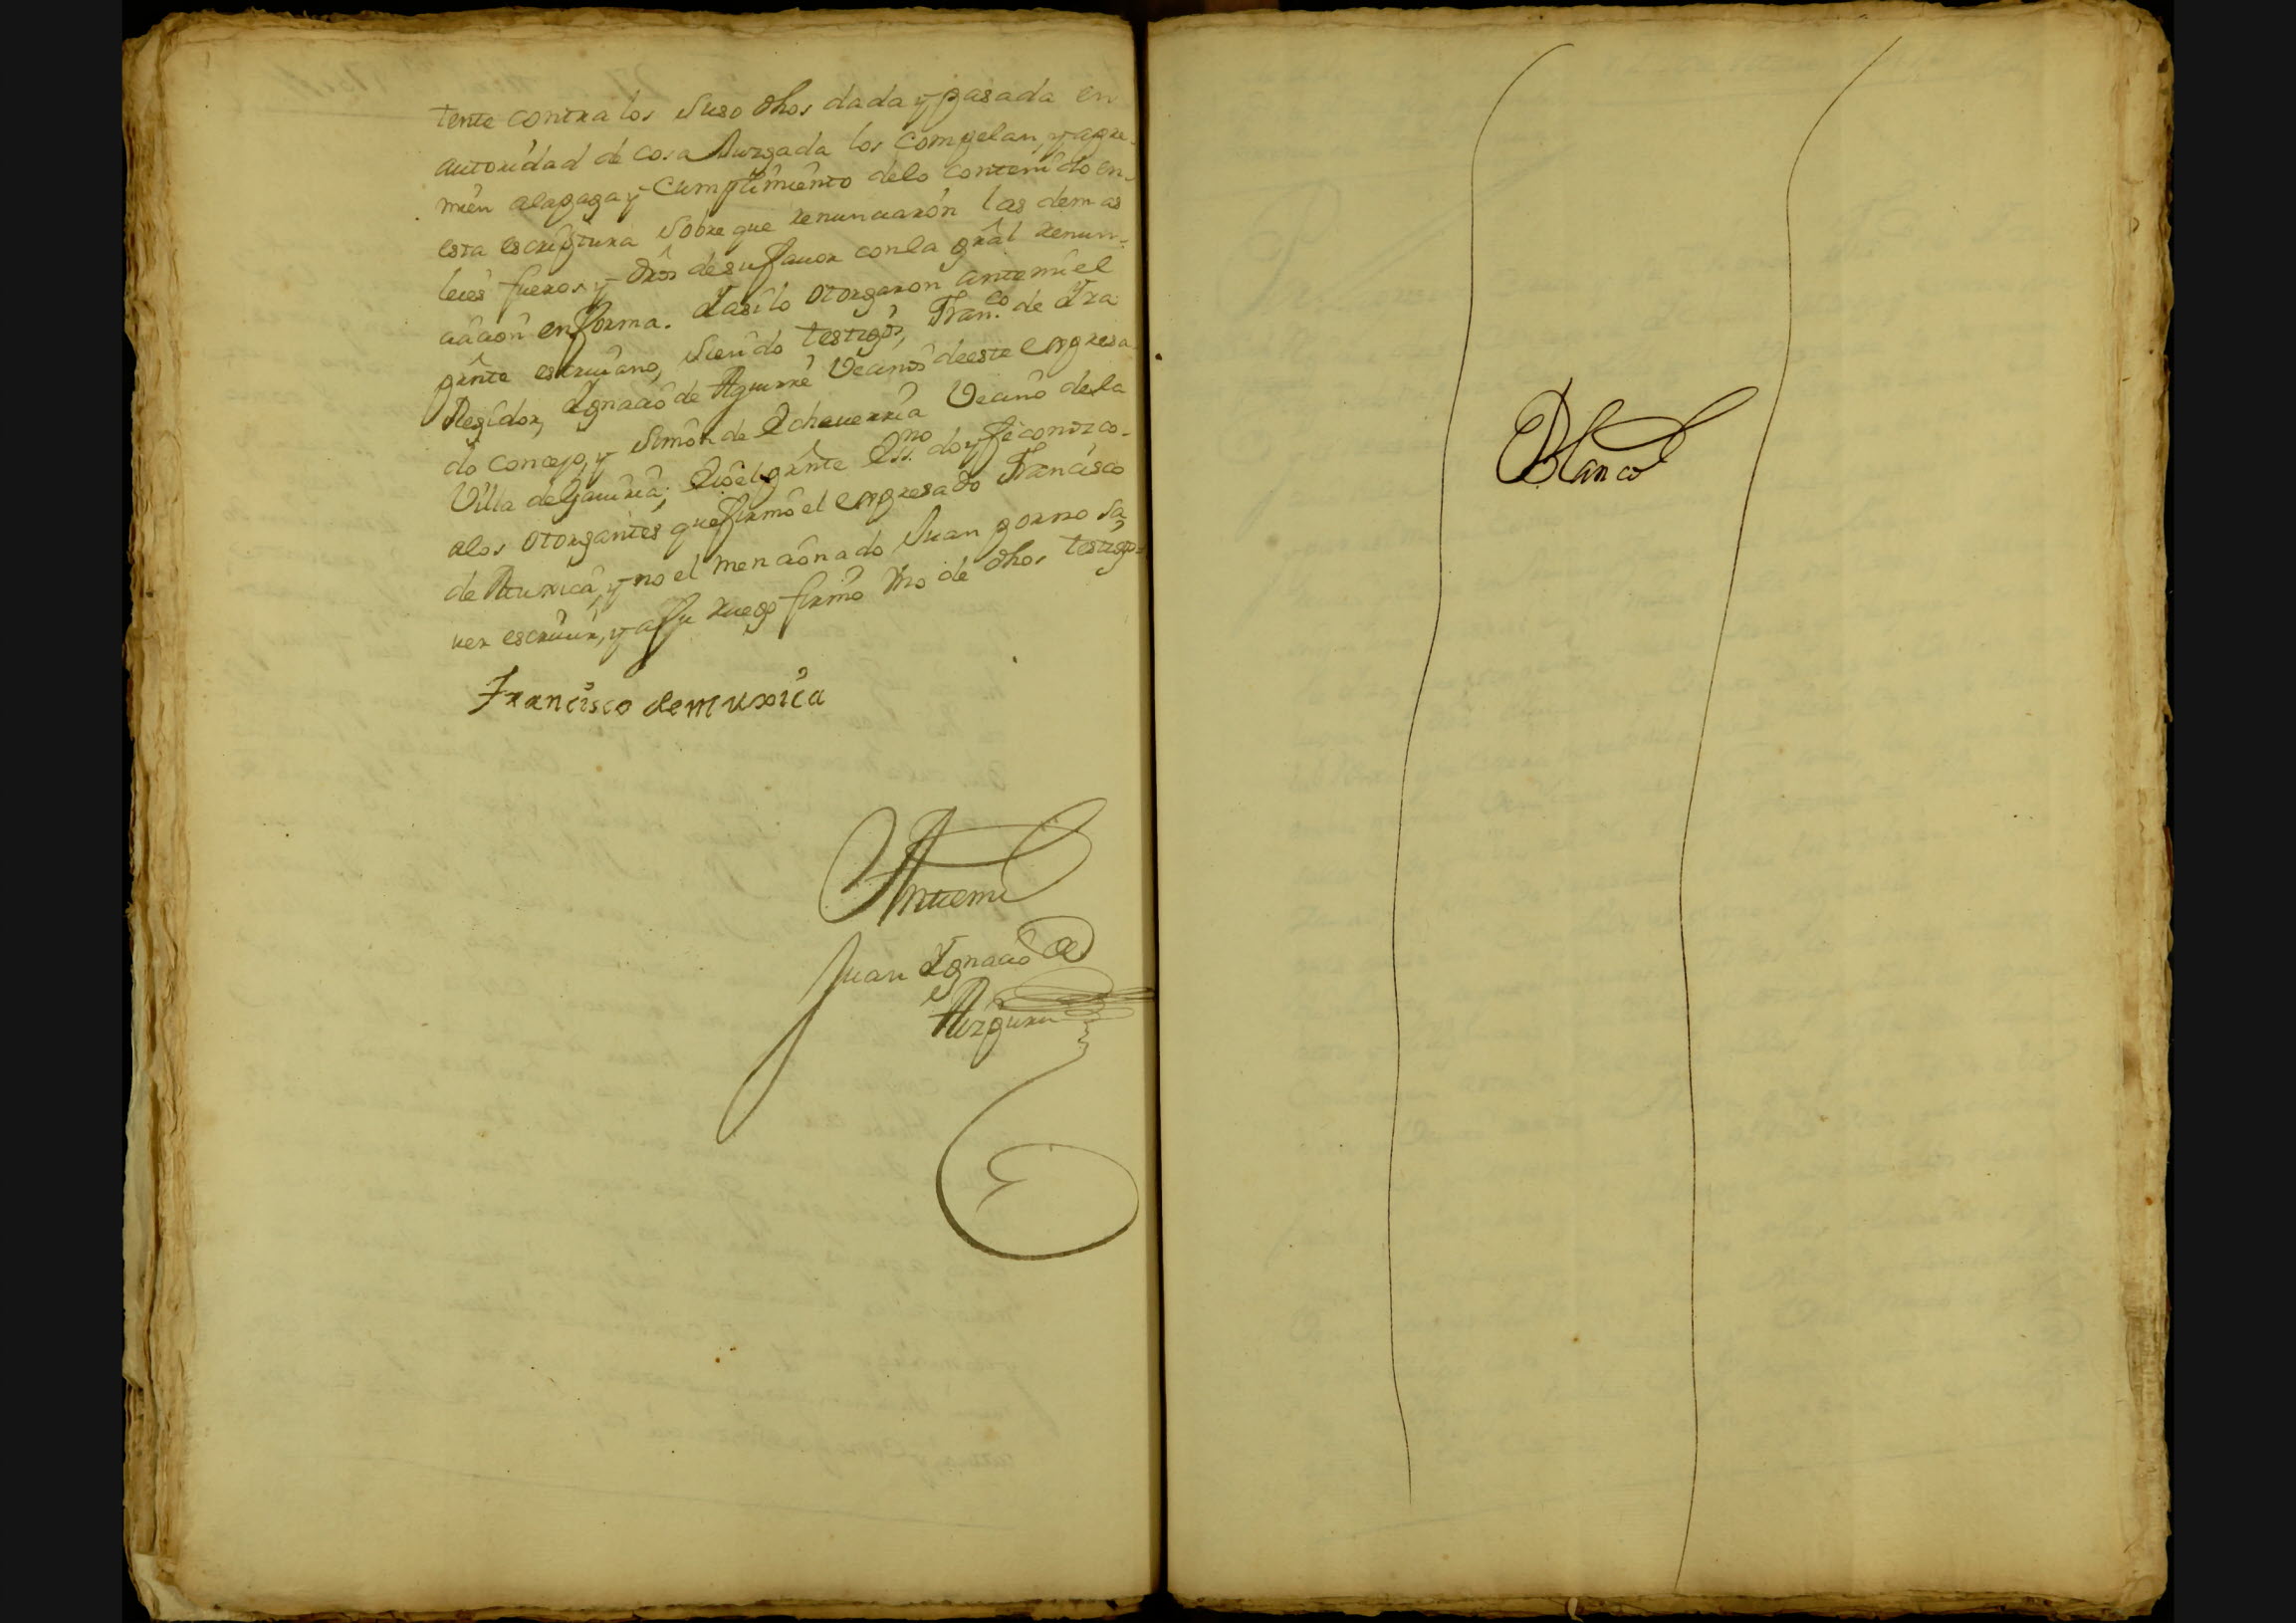 tente contra los suso dhos dada y pasada en
autoridad de cosa Juzgada los Compelan, y apre-
mien alapaga y Cumplimiento delo Contenido en
esta escriptura sobre que renunciaron las demas
leies fueros y dros desufauor conla gral renun-
ciacion enforma. Y asilo otorgaron antemi el
prnte escriuano, siendo testigos, Fran.co de Yra
Regidor, Ygnacio de Aguirre Vecinos deeste expresa
do concejo, y Simon de Echeuerria Vecino dela
Villa de Gauiria; E io el prnte Ess.no doy fe conozco
alos otorgantes que firmo el expresado Francisco
de Muxica, y no el mencionado Juan porno sa
uer escriuir, y asu ruego firmo Vno de dhos testigos
Francisco de muxica
Antemi
Juan Ygnacio de
Aizpuru
Blanco